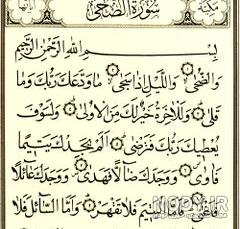 سُورَةُ الضُّحَىٰ
بِسْمِ اللَّهِ الرَّحْمَٰنِ الرَّحِيمِ
وَالضُّحَىٰ ۝ وَاللَّيْلِ إِذَا سَجَىٰ ۝ مَا وَدَّعَكَ رَبُّكَ وَمَا
قَلَىٰ ۝ وَلَلْآخِرَةُ خَيْرٌ لَكَ مِنَ الْأُولَىٰ ۝ وَلَسَوْفَ
يُعْطِيكَ رَبُّكَ فَتَرْضَىٰ ۝ أَلَمْ يَجِدْكَ يَتِيمًا
فَآوَىٰ ۝ وَوَجَدَكَ ضَالًّا فَهَدَىٰ ۝ وَوَجَدَكَ عَائِلًا
فَأَغْنَىٰ ۝ فَأَمَّا الْيَتِيمَ فَلَا تَقْهَرْ ۝ وَأَمَّا السَّائِلَ فَلَا